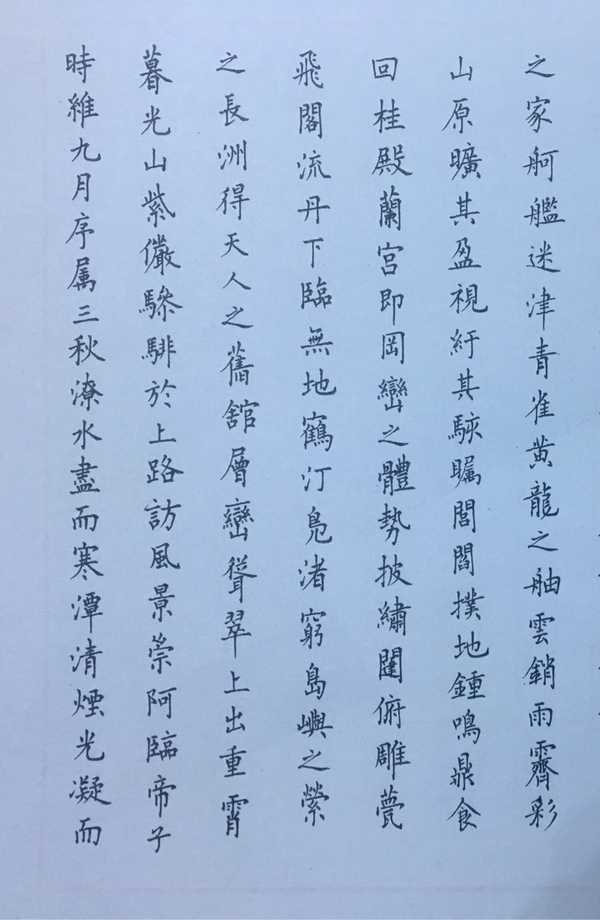 時維九月序属三秋潦水盡而寒潭清煙光凝而
暮光山紫儼驂騑於上路訪風景崇阿臨帝子
之長洲得天人之舊舘層巒聳翠上出重霄
飛閣流丹下臨無地鶴汀鳧渚窮島嶼之縈
回桂殿蘭宮即岡巒之體勢披繡闥俯雕甍
山原曠其盈視紆其駭矚閭閻撲地鍾鳴鼎食
之家舸艦迷津青雀黄龍之舳雲銷雨霽彩